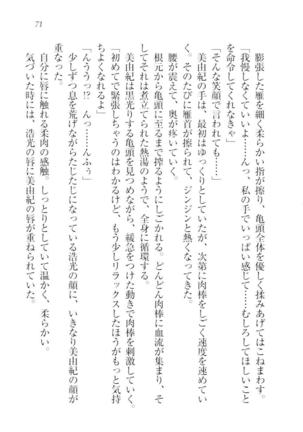 71
膨張した雁を細く柔らかい指が擦り、亀頭全体を優しく揉みあげてはこねまわす。
「我慢しなくていいよ……んっ、私の手でいっぱい感じて……むしろしてほしいこと
を命令してくれなきゃ」
「そんな笑顔で言われても……」
美由紀の手は、最初はゆっくりとしていたが、次第に肉棒をしごく速度を速めてい
く。そのたびに雁首が擦られて、ジンジンと熱くなってきた。
腰が震えて、奥が疼いていく。
根元から亀頭に至るまで搾るようにしごかれる。どんどん肉棒に血流が集まり、そ
してそれは煮立てられた熱湯のようで、全身に循環する。
美由紀は黒光りする亀頭を見つめながら、緩急をつけた動きで肉棒を刺激する。
「初めてで緊張しちゃうのはわかるけど、もう少しリラックスしたほうがもっと気持
ちよくなれるよ」
「んううっ!?　んっ……んふぅ」
少しずつ息を荒げながらたじたじになっている浩光の顔に、いきなり美由紀の顔が
重なった。
自分に唇に触れる柔肉の感触。しっとりとしていて温かく、柔らかい。
気づいた時には、浩光の唇に美由紀の唇が重ねられていた。